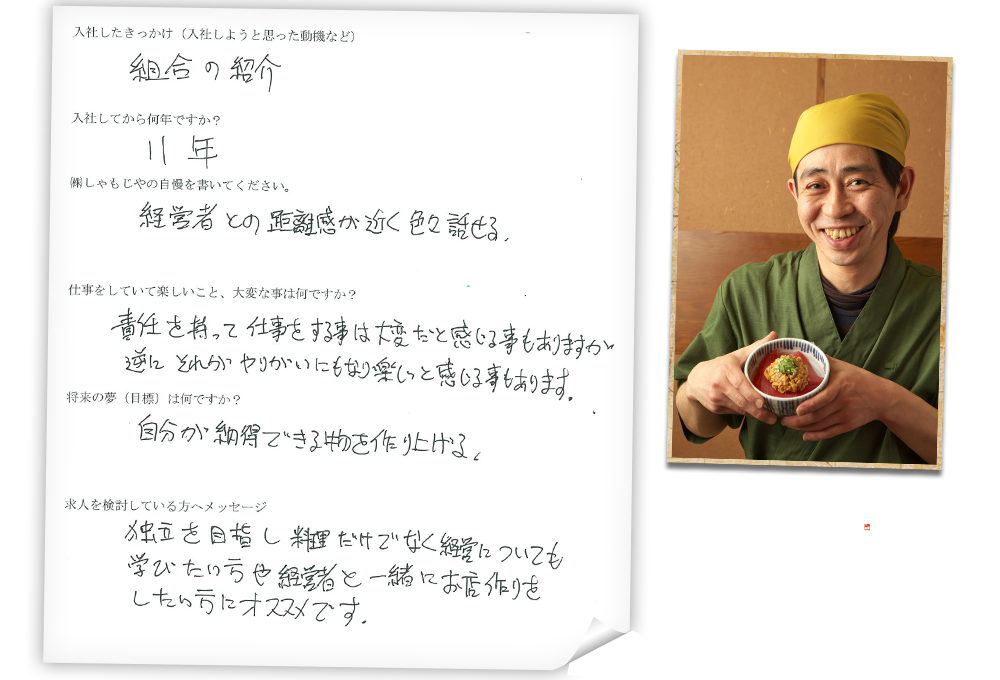 入社したきっかけ（入社しようと思った動機など）
組合の紹介
入社してから何年ですか？
11年
㈱しゃもじやの自慢を書いてください。
経営者との距離感が近く色々話せる。
仕事をしていて楽しいこと、大変な事は何ですか？
責任を持って仕事をする事は大変だと感じる事もありますが
逆に それが やりがいにもなり楽しいと感じる事もあります。
将来の夢（目標）は何ですか？
自分が納得できる物を作り上げる。
求人を検討している方へメッセージ
独立を目指し 料理だけでなく経営についても
学びたい方や経営者と一緒にお店作りを
したい方にオススメです。